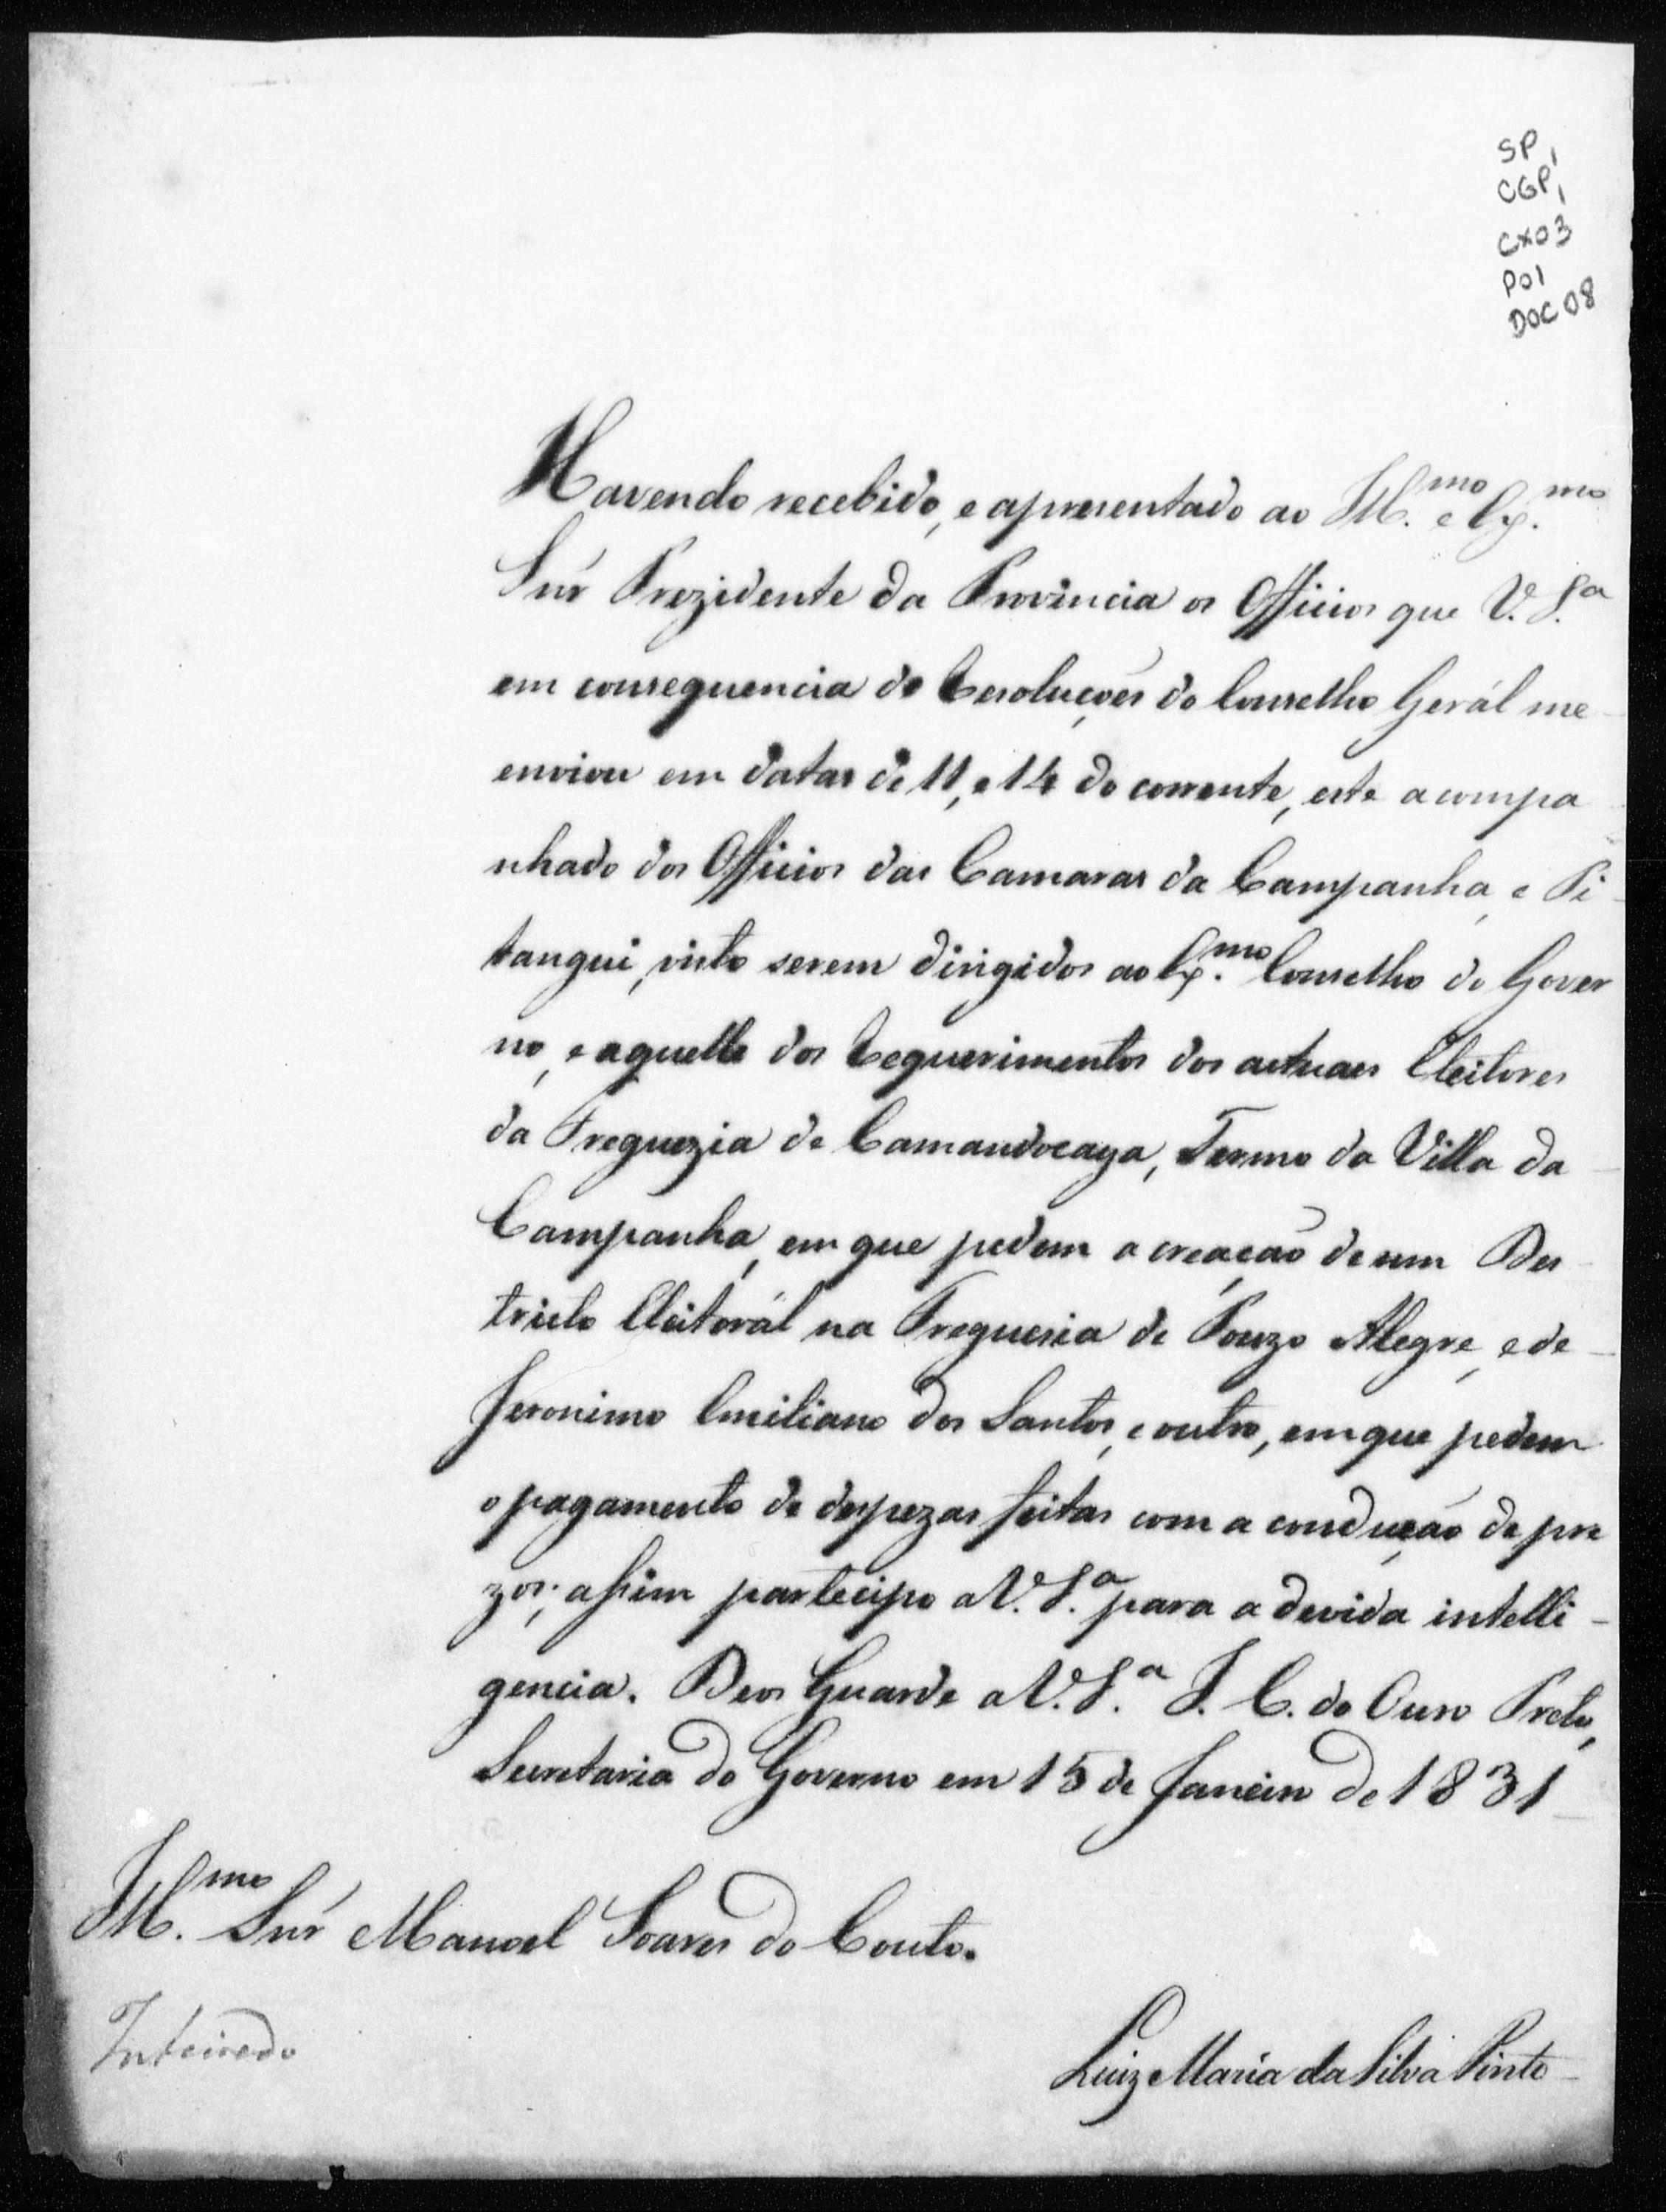 SP,
CGP,
CX03
P01
DOC 08
Havendo recebido, e apresentado ao Ill.mo e Ex.mo
Snr Prezidente da Provincia os Officios que V. S.a
em consequencia de Resoluções do Conselho Gerál me
enviou em datas de 11, e 14 do corrente, este acompa
nhado dos Officios das Camaras da Campanha, e Pi
tangui, visto serem dirigidos ao Ex.mo Conselho do Gover
no, e aquelle dos Requerimentos dos actuaes Eleitores
da Freguezia de Camandocaya, Termo da Villa da
Campanha, em que pedem a creação de um Des
tricto Eleitorál na Freguesia de Pouzo Alegre, e de
Jeronimo Emiliano dos Santos, e outro, em que pedem
o pagamento de despezas feitas com a condução de pre
zos; assim partecipo a V. S.a para a devida intelli
gencia. Deos Guarde a V. S.a I. C. do Ouro Preto,
Secretaria do Governo em 15 de Janeiro de 1831
Ill.mo Snr Manoel Soares do Couto.
Inteirado
Luiz Maria da Silva Pinto